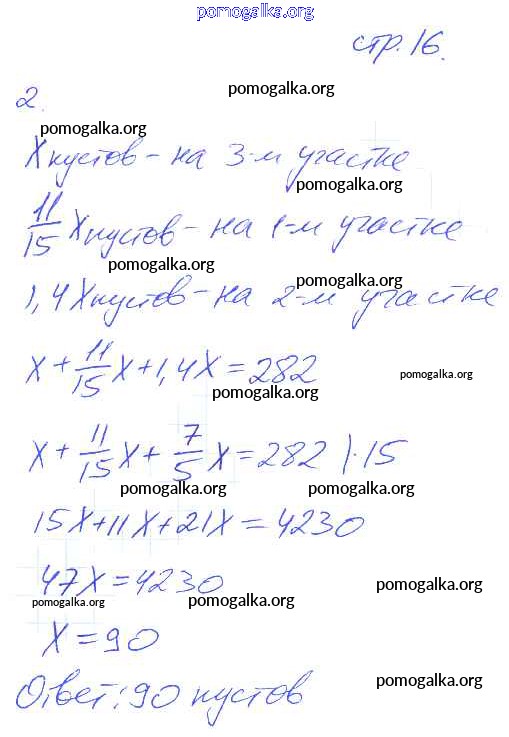 pomogalka.org
стр. 16.
pomogalka.org
2.
pomogalka.org
X кустов - на 3-м участке
pomogalka.org
11/15 X кустов - на 1-м участке
pomogalka.org pomogalka.org
1,4 X кустов - на 2-м участке
X + 11/15 X + 1,4X = 282
pomogalka.org
pomogalka.org
X + 11/15 X + 7/5 X = 282 | · 15
pomogalka.org pomogalka.org
15X + 11X + 21X = 4230
47X = 4230
pomogalka.org
pomogalka.org pomogalka.org
X = 90
Ответ: 90 кустов
pomogalka.org